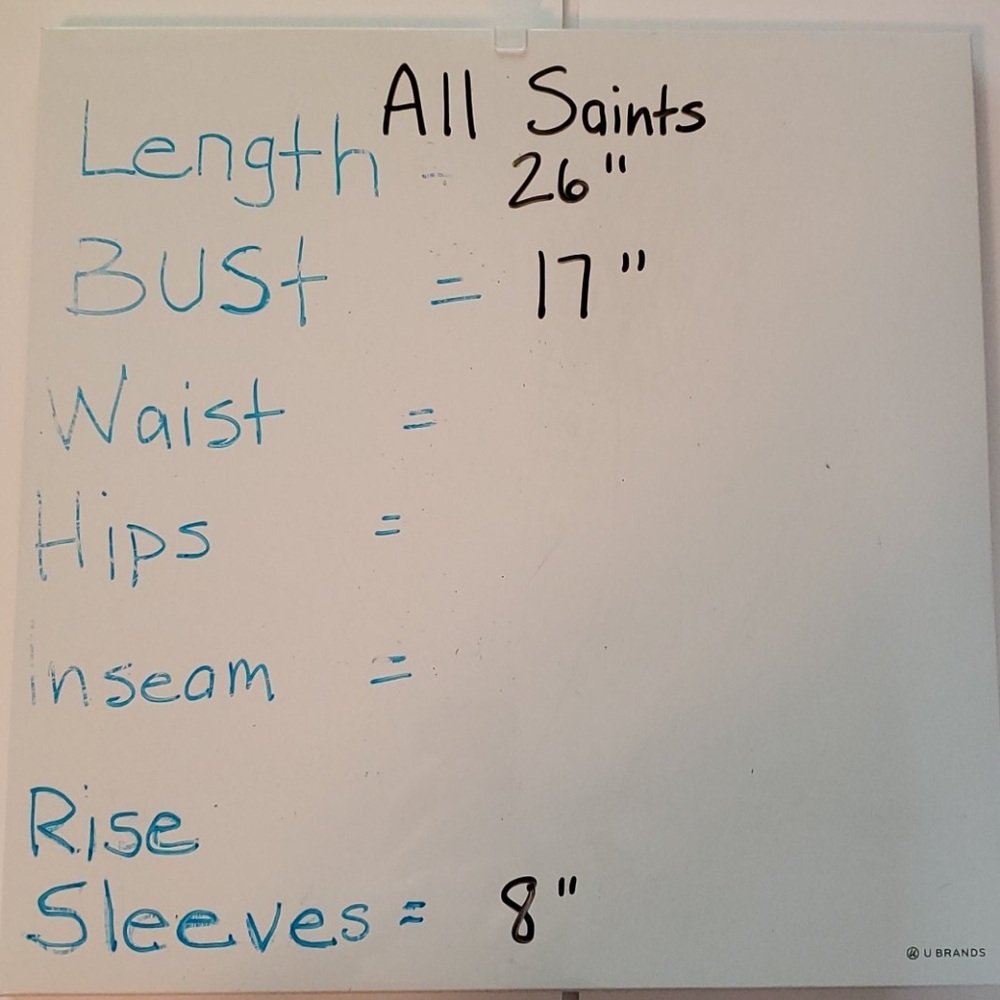 All Saints
Length = 26"
BUSt = 17"
Waist =
Hips =
inseam =
Rise
Sleeves = 8"
U BRANDS